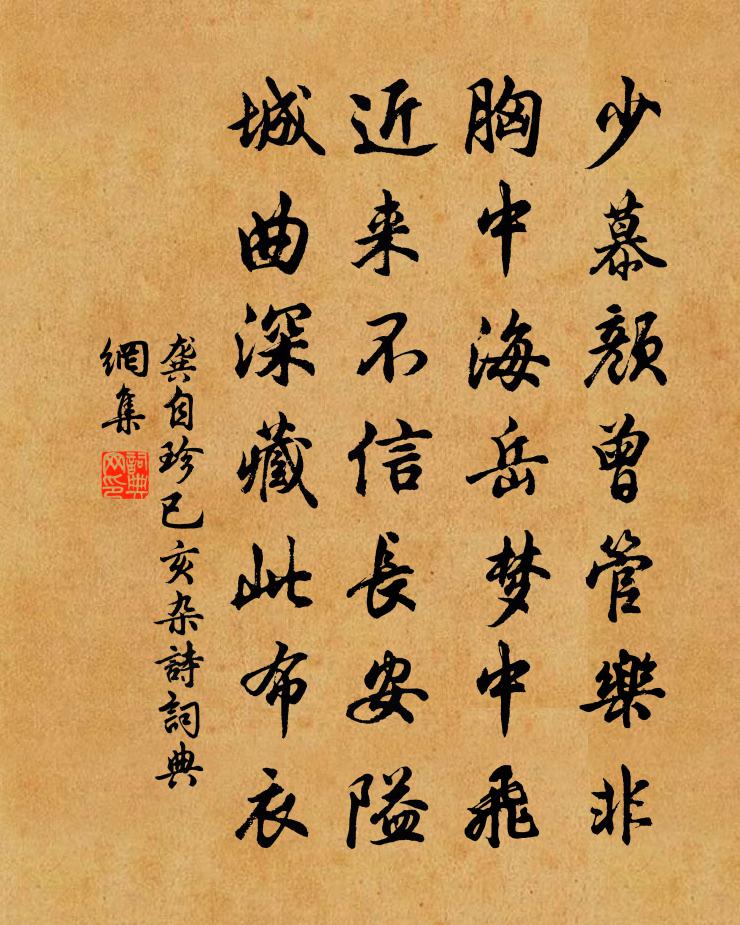 少慕顏曾管樂非
胸中海岳梦中飛
近来不信長安隘
城曲深藏此布衣
龚自珍已亥杂詩詞典
網集
詞典網印